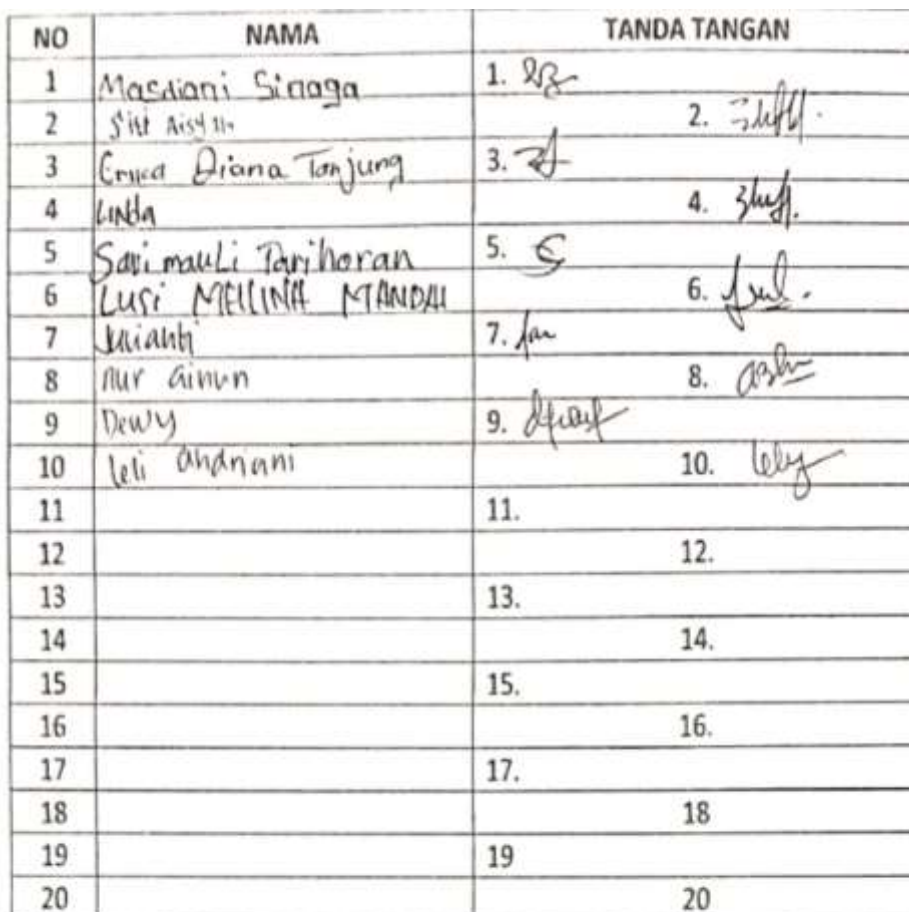 NO NAMA TANDA TANGAN
1 Masdiani Sinaga 1.
2 Siti Aisyah 2.
3 Diana Tanjung 3.
4 LINDA 4.
5 Sarimauli Parihoran 5.
6 LUSI MELLINA 6.
7 Julianti 7.
8 nur ainun 8.
9 Dewy 9.
10 leli andriani 10. lely
11 11.
12 12.
13 13.
14 14.
15 15.
16 16.
17 17.
18 18
19 19
20 20